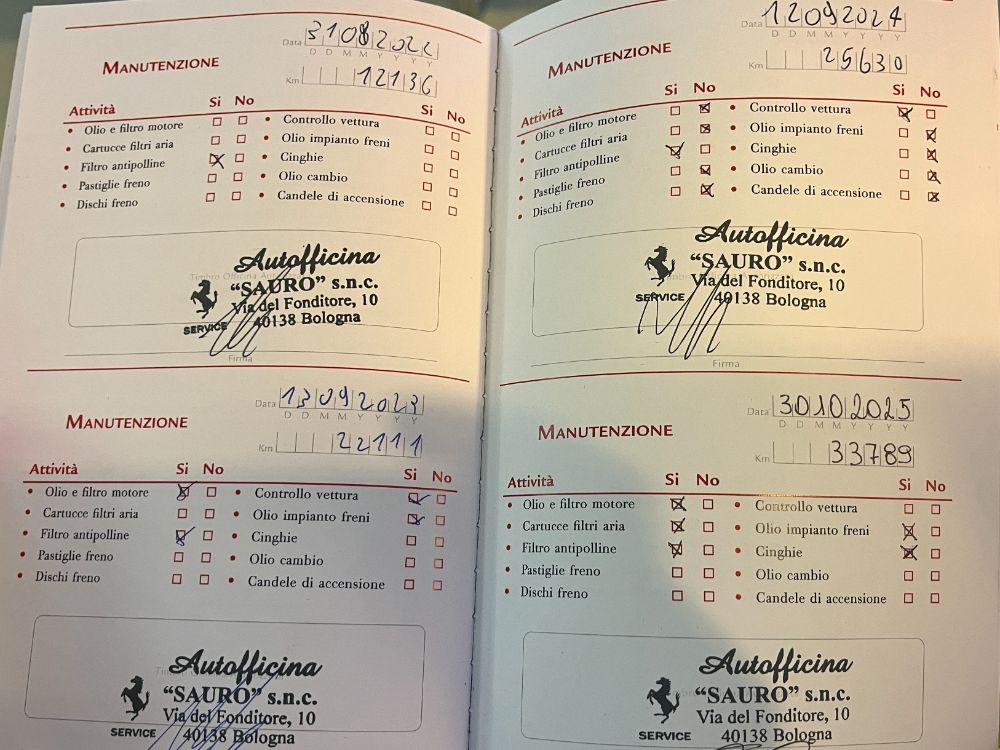 Data 31082022
D D M M Y Y Y Y
MANUTENZIONE
Km 12136
Attività Si No Si No
• Olio e filtro motore • Controllo vettura
• Cartucce filtri aria • Olio impianto freni
• Filtro antipolline • Cinghie
• Pastiglie freno • Olio cambio
• Dischi freno • Candele di accensione
Autofficina
"SAURO" s.n.c.
Via del Fonditore, 10
SERVICE 40138 Bologna
Firma
Data 13092023
D D M M Y Y Y Y
MANUTENZIONE
Km 22111
Attività Si No Si No
• Olio e filtro motore • Controllo vettura
• Cartucce filtri aria • Olio impianto freni
• Filtro antipolline • Cinghie
• Pastiglie freno • Olio cambio
• Dischi freno • Candele di accensione
Autofficina
"SAURO" s.n.c.
Via del Fonditore, 10
SERVICE 40138 Bologna
Data 12092024
D D M M Y Y Y Y
MANUTENZIONE
Km 25630
Attività Si No Si No
• Olio e filtro motore • Controllo vettura
• Cartucce filtri aria • Olio impianto freni
• Filtro antipolline • Cinghie
• Pastiglie freno • Olio cambio
• Dischi freno • Candele di accensione
Autofficina
"SAURO" s.n.c.
Via del Fonditore, 10
SERVICE 40138 Bologna
Firma
Data 30102025
D D M M Y Y Y Y
MANUTENZIONE
Km 33789
Attività Si No Si No
• Olio e filtro motore • Controllo vettura
• Cartucce filtri aria • Olio impianto freni
• Filtro antipolline • Cinghie
• Pastiglie freno • Olio cambio
• Dischi freno • Candele di accensione
Autofficina
"SAURO" s.n.c.
Via del Fonditore, 10
SERVICE 40138 Bologna